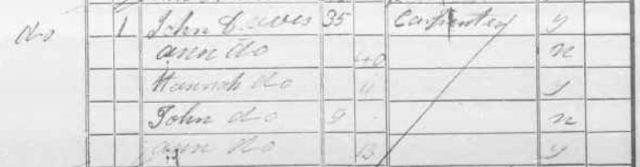 do 1 John Daves 35 Carpenter y
ann do 40 n
Hannah do 11 y
John do 9 n
ann do 13 y